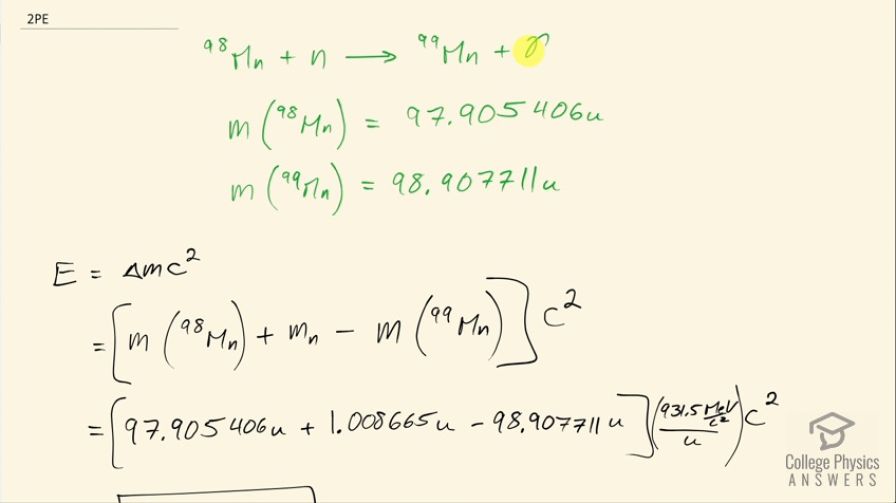 2PE
⁹⁸Mn + n → ⁹⁹Mn + γ
m(⁹⁸Mn) = 97.905406u
m(⁹⁹Mn) = 98.907711u
E = Δmc²
= [m(⁹⁸Mn) + mₙ − m(⁹⁹Mn)]c²
= [97.905406u + 1.008665u − 98.907711u](931.5 MeV/c² / u)c²
College Physics
ANSWERS